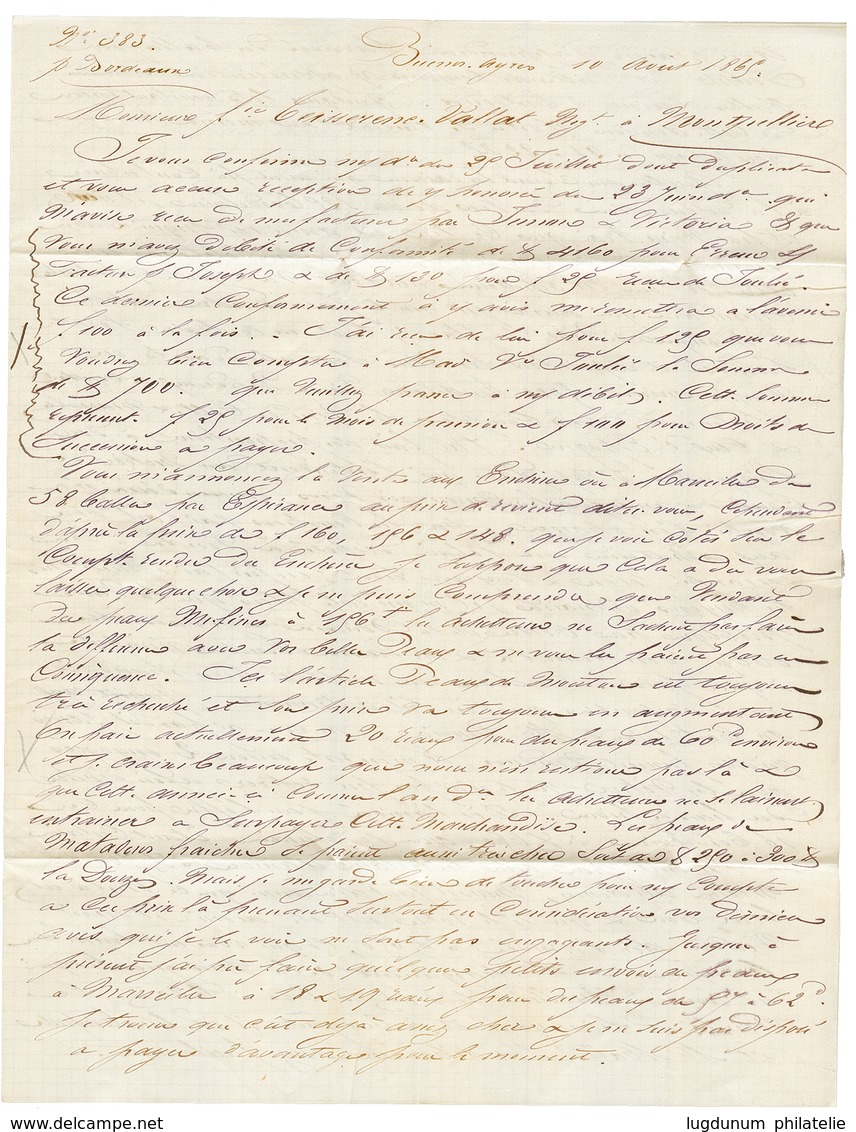 No 383.
p Bordeaux
Buenos-Ayres 10 Aout 1865.
Messieurs Teisserenc-Vallat Negt à Montpellier
Je vous confirme my du 25 Juillet dont duplicata
et vous accuse reception de honorée du 23 Juin qui
m'avise de mes factures par & Victoria & que
Vous m'avez debité de Conformité de $ 4160 pour
p Joseph & de $ 130 pour f 25 de
Ce dernier conformement à avis me remettra à l'avenir
f 100 à la fois. J'ai de lui pour f 125 que vous
Voudrez bien Compter à Mad Ve la Somme
de $ 700. que Veuillez passer à my débit. Cette Somme
f 25 pour le Mois de pension & f 100 pour Droits de
Succession à payer.
Vous m'annoncez la Vente aux Enchères à Marseille de
58 balles par Espérance au prix de revient dites vous, Cependant
d'après les prix de f 160, 156 & 148. que je vois côtés sur le
Compte rendu des Enchères je suppose que Cela a dû vous
laisser quelque chose & je ne puis Comprendre que Vendant
Des peaux à 156 f les acheteurs ne Sachent pas faire
la difference avec Vos belles Peaux & ne vous les paient pas en
Consequence. Ici l'article Peaux de Mouton est toujours
très recherché et Son prix va toujours en augmentant
On paie actuellement 20 réaux pour des peaux de 60 environ
et je crains beaucoup que nous n'en restions pas là &
que Cette année-ci Comme l'an der les acheteurs ne Se laissent
entrainer à Surpayer Cette Marchandise. Les peaux de
Mataderos fraiches Se paient aussi très cher $ 250 à 300 $
la Douze. Mais je me garde bien de toucher pour my Compte
à Ces prix là prenant Surtout en Considération vos derniers
avis qui je le vois ne Sont pas engageants. Jusqu'à
présent j'ai pû faire quelques petits envois de peaux
à Marseille à 18 & 19 réaux pour des peaux de 57 à 62 d.
Je trouve que c'est déjà assez cher & je ne suis pas disposé
à payer d'avantage pour le moment.
www.delcampe.net
lugdunum philatelie